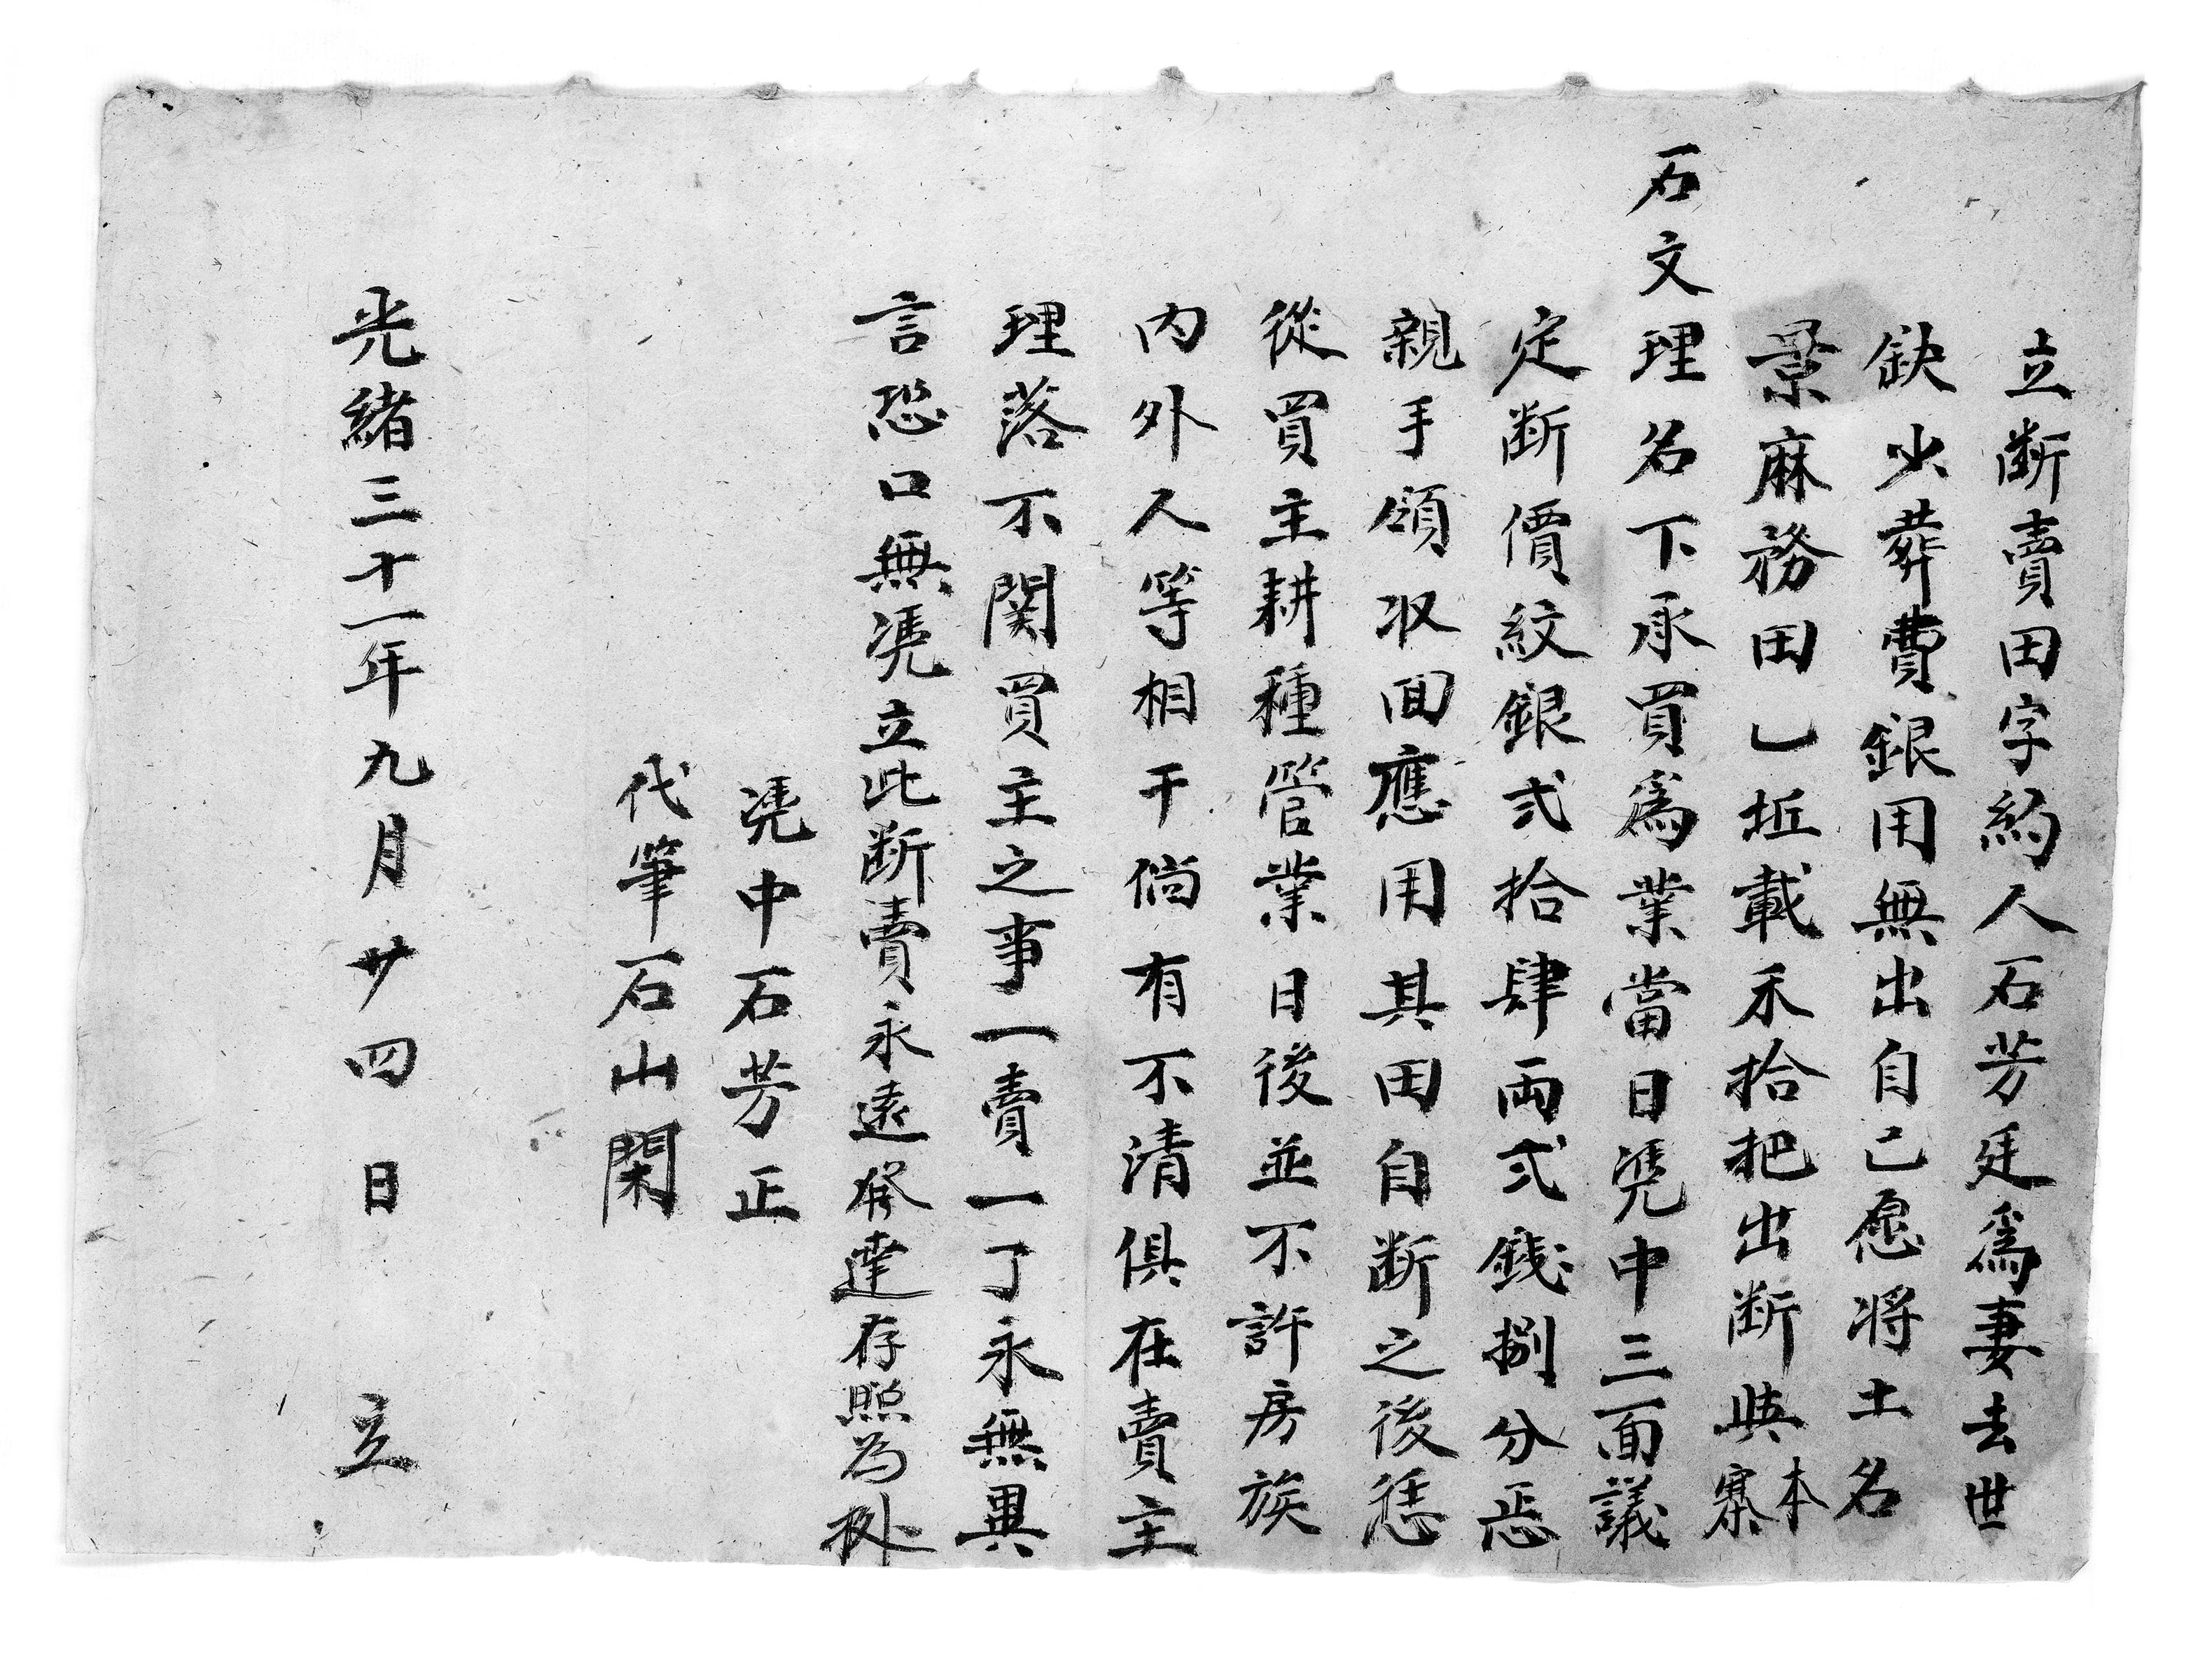 立断賣田字約人石芳廷爲妻去世
缺少葬費銀用無出自己愿将土名
景麻務田乚坵載禾拾把出断與本寨
石文理名下承買爲業當日凴中三面議
定断價紋銀弍拾肆両弍錢捌分恁
親手領収囬應用其田自断之後恁
從買主耕種管業日後並不許房族
内外人等相干倘有不清俱在賣主
理落不関買主之事一賣一了永無異
言恐口無凴立此断賣永遠發達存照為处
凴中石芳正
代筆石山閑
光緒三十一年九月廿四日立